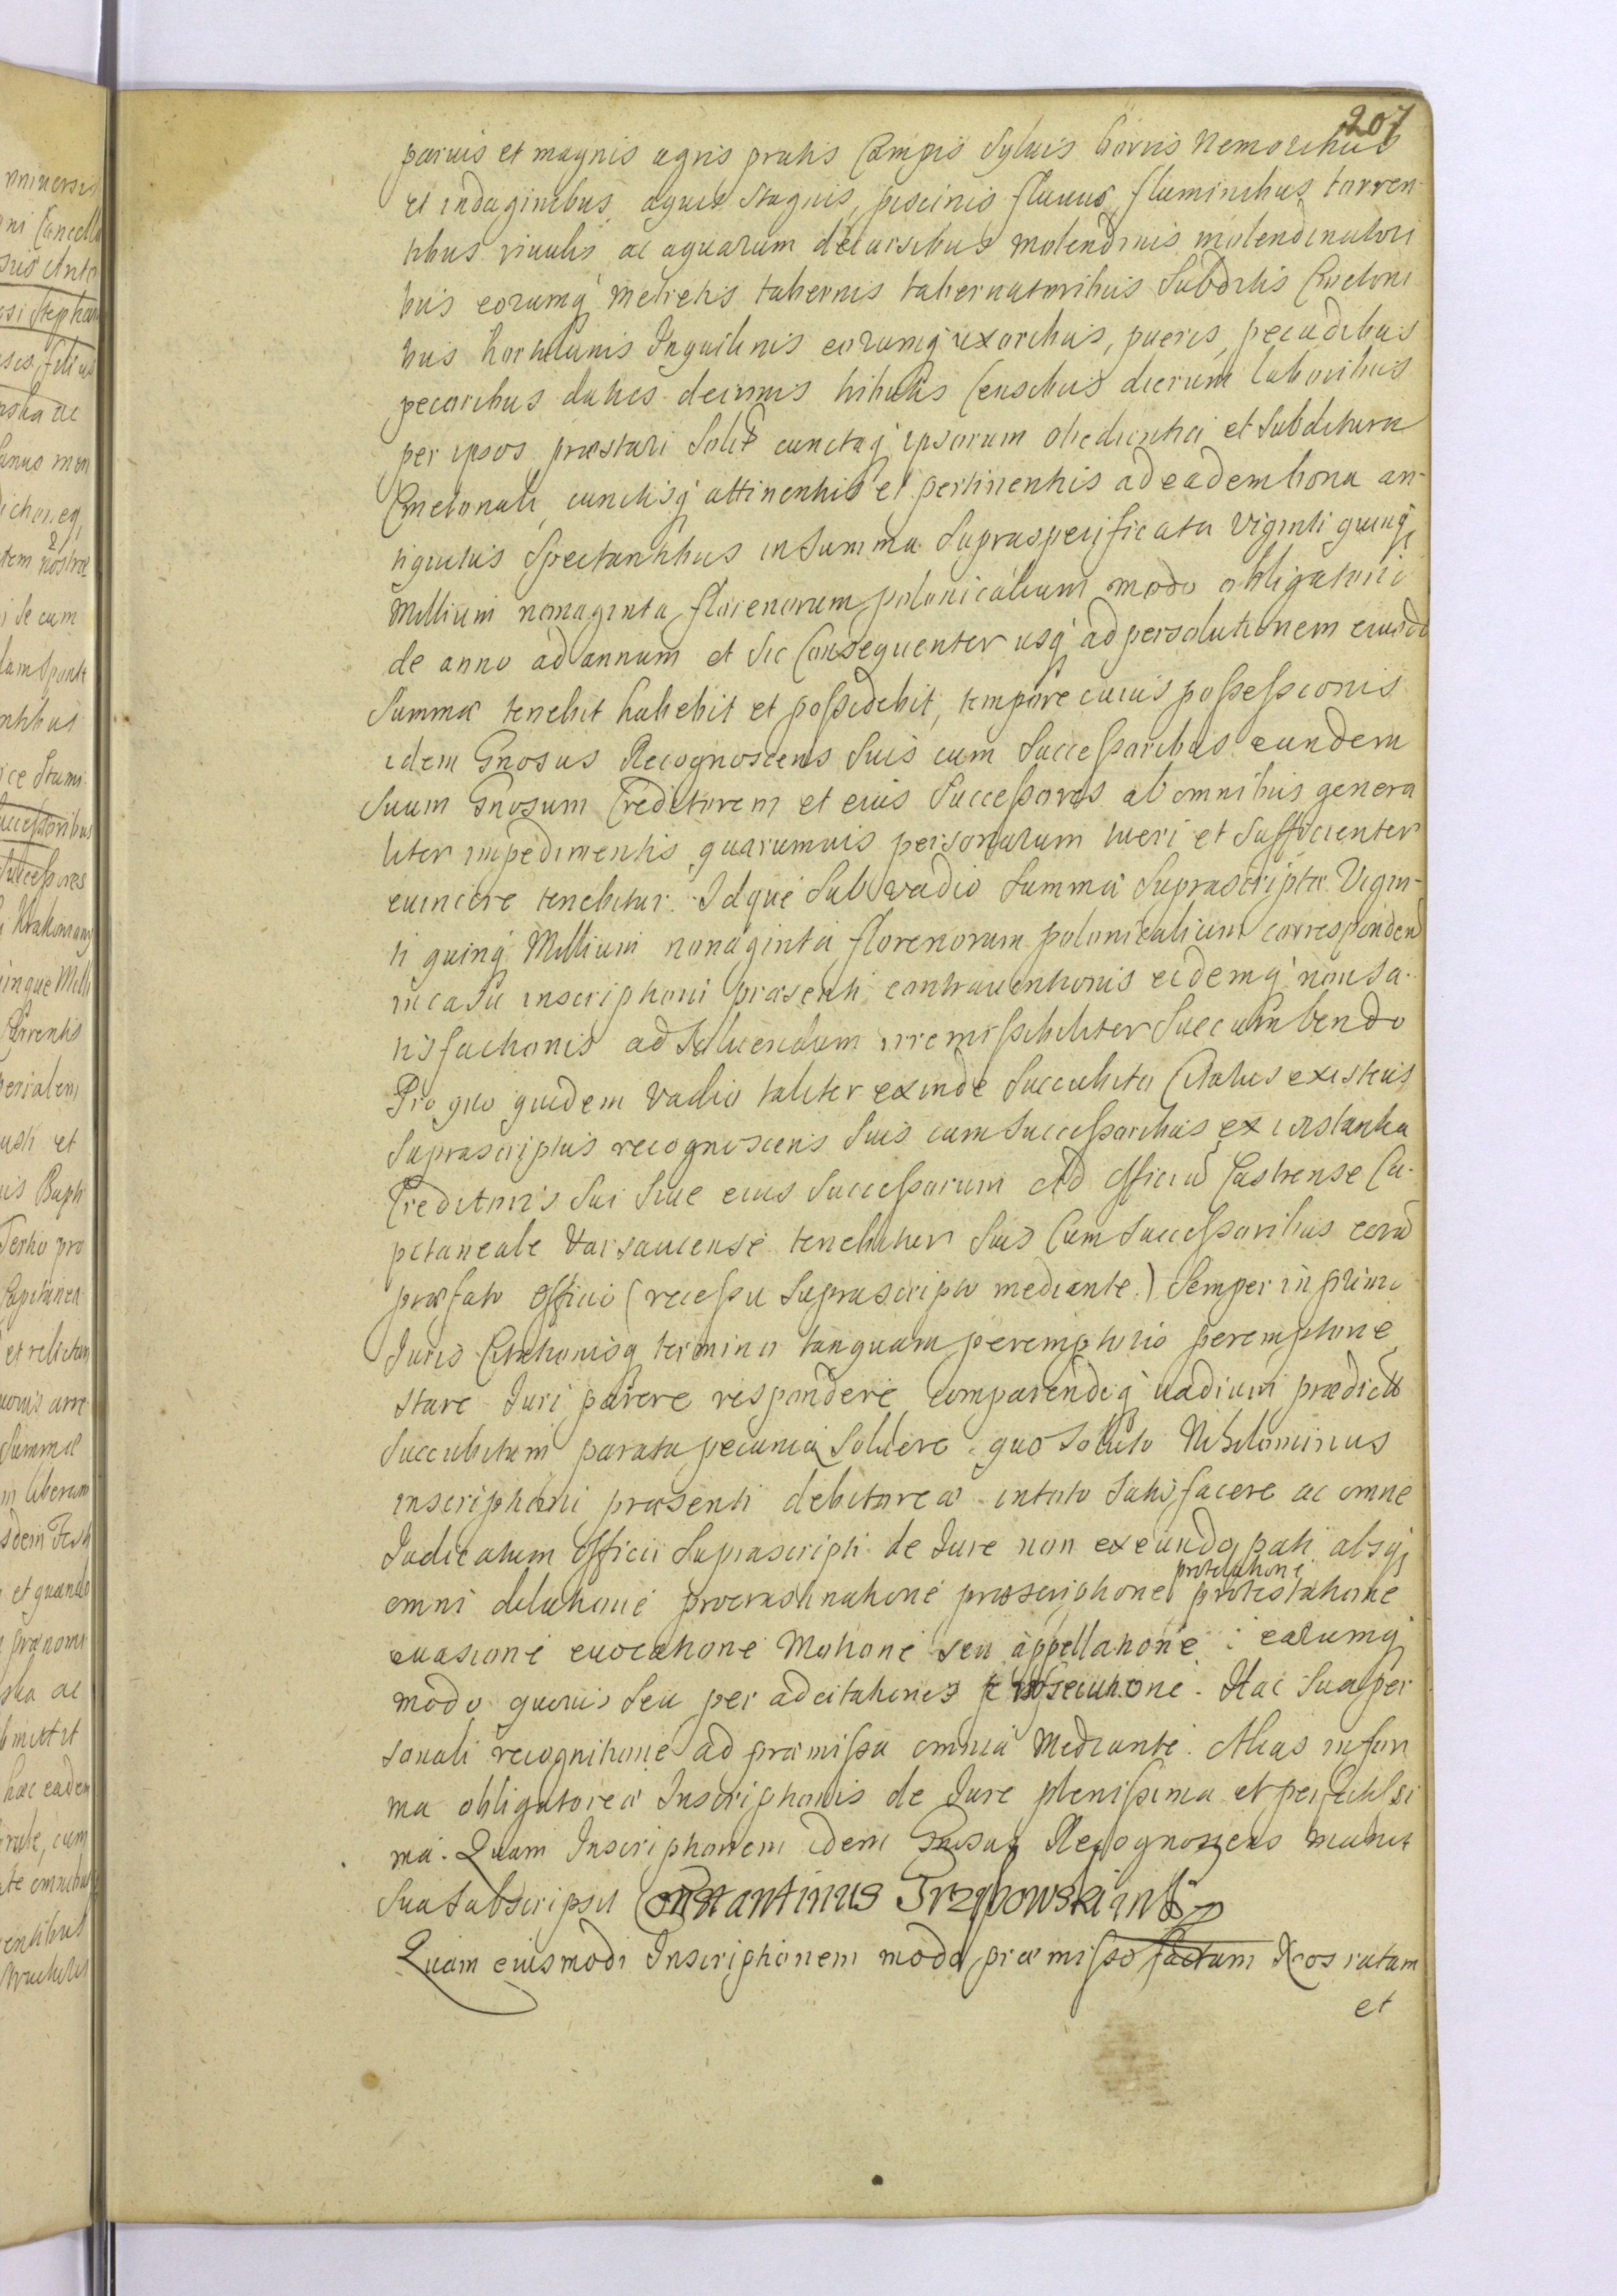 207
paruis et magnis agris pratis Campis Syluis borris Nemoribus
et indaginibus, aquis Stagnis, piscinis fluuus, fluminibus torren-
tibus riuulis ac aquarum decursibus molendinis molendinatori
bus eorumq' metretis tabernis tabernatoribus Subdtis Cmetoni
bus hortulanis Inquilinis eorumq' uxoribus, pueris, pecudibus
pecoribus datiis decimis tributis Censibus dierum laboribus
per ipsos præstari Solit cunctaq' ipsorum obedientia et Subditura
Cmetonali, cunctisq' attinentiis et pertinentiis ad eadem bona an-
tiquitus Spectantibus in Summa Supraspecificata Viginti quinq
Millium nonaginta florenorum polonicalium modo obligatorio
de anno ad annum et Sic Consequenter usq' ad persolutionem eiusd
Summæ tenebit habebit et possidebit, tempore cuius possessionis
idem Gnosus Recognoscens Suis cum Successoribus eundem
Suum Gnosum Creditorem et eius Successores ab omnibus genera
liter impedimentis quarumuis personarum tueri et Sufficienter
euincere tenebitur. Idque Sub vadio Summæ Suprascriptæ Vigin-
ti quinq' Millium nonaginta florenorum polonicalium correspondend
in casu inscriptioni præsenti contrauentionis eidemq' non sa-
tisfactionis ad Soluendum irremissibiliter Succumbendo
Pro quo quidem Vadio taliter exinde Succubito Citatus existens
Suprascriptus recognoscens Suis cum Successoribus ex instantia
Creditoris Sui Siue eius Successorum Ad Officiu Castrense Ca-
pitaneale Varsauiense tenebitur Suis Cum Successoribus cora
præfato Officio (recessu Suprascripto mediante) Semper in primo
Juris Citationisq termino tanquam peremptorio peremptorie
Stare Juri parere respondere comparendoq' uadium prædictu
Succubitum parata pecunia Soluere. quo Soluto Nihilominus
inscriptioni præsenti debitorea intoto Satisfacere ac omne
Judicatum Officii Suprascripti de Jure non exeundo pati absq
protelatione
omni dilatione procrastinatione proscriptione protestatione
euasione euocatione Motione seu appellatione: earumq
modo quouis Seu per adcitationes prosecutione. Hac Sua per
sonali recognitione ad præmissa omnia Mediante. Alias in for
ma obligatorea Inscriptionis de Jure plenissima et perfectissi
ma. Quam Inscriptionem idem Gnosus Recognoscens manu
Sua Subscripsit Constantinus Trzybowski
Quam eiusmodi Inscriptionem modo præmisso factam Nos ratam
et